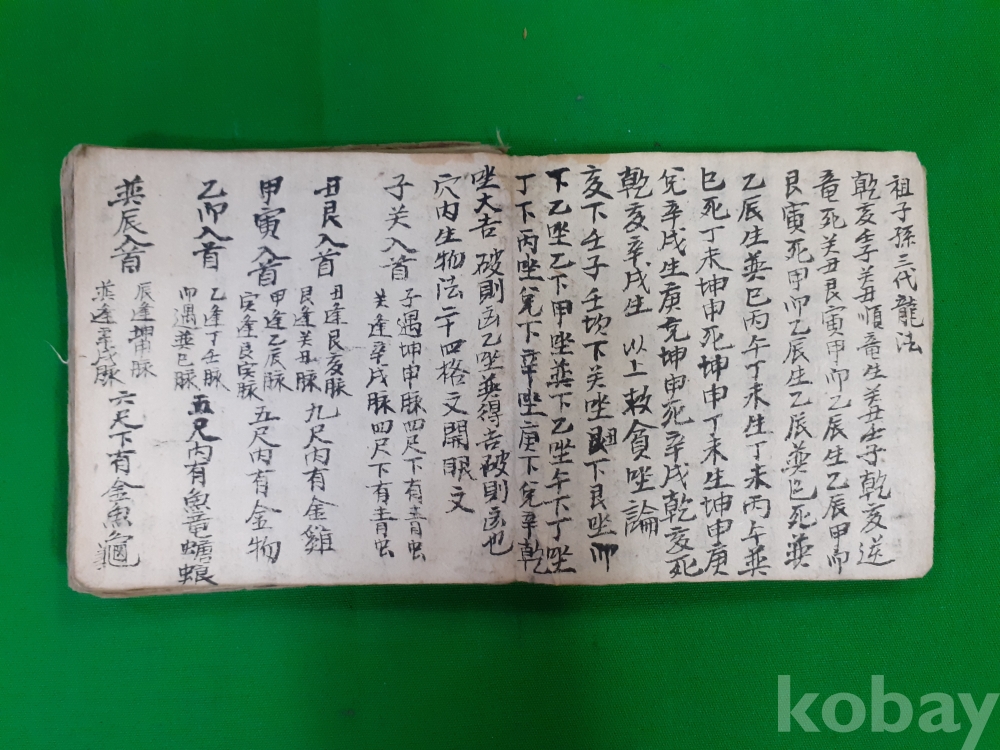 祖子孫三代龍法
乾亥壬癸丑順竜生癸丑壬子乾亥送
竜死癸丑艮寅甲卯乙辰生乙辰甲卯
艮寅死甲卯乙辰生乙辰巽巳死巽
乙辰生巽巳丙午丁未生丁未丙午巽
巳死丁未坤申死坤申丁未生坤申庚
兌辛戌生庚兌坤申死辛戌乾亥死
乾亥辛戌生 以上救貧坐論
亥下壬子壬坎下癸坐艮下艮坐卯
下乙坐乙下甲坐巽下乙坐午下丁坐
丁下丙坐兌下辛坐庚下兌辛乾
坐大吉 破則凶乙坐巽得吉破則凶也
穴内生物法二十四格文開眼文
子癸入首 子遇坤申脉四尺下有青虫
癸逢辛戌脉四尺下有青虫
丑艮入首 丑逢艮亥脉 九尺内有金雞
艮逢癸丑脉
甲寅入首 甲逢乙辰脉 五尺内有金物
寅逢艮寅脉
乙卯入首 乙逢丁壬脉 五尺内有魚竜
卯遇巽巳脉
巽辰入首 辰逢坤申脉 六尺下有金魚龜
巽逢辛戌脉
kobay